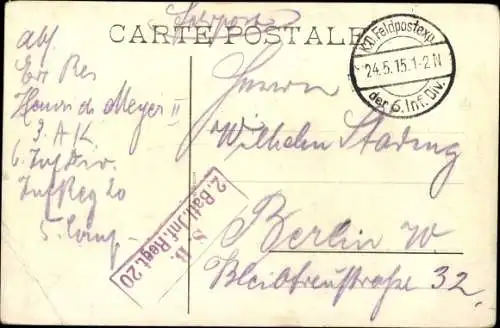 Feldpost
CARTE POSTALE
K.D. Feldpostexp.
24.5.15.1-2N
der 6. Inf. Div.
Abs.
Ers Res
de Meyer II
3. A K
6. Inf Div.
Inf Reg 20
5. Comp
Herrn
Wilhelm
Berlin W.
Bleibtreustraße 32.
S. B.
2. Batl. Inf. Regt. 20